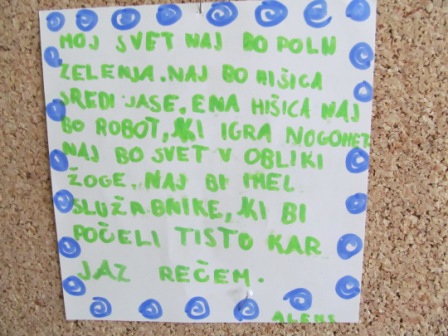 MOJ SVET NAJ BO POLN
ZELENJA. NAJ BO HIŠICA
SREDI JASE, ENA HIŠICA NAJ
BO ROBOT, KI IGRA NOGOMET
NAJ BO SVET V OBLIKI
ŽOGE. NAJ BI IMEL
SLUŽABNIKE, KI BI
POČELI TISTO KAR
JAZ REČEM.